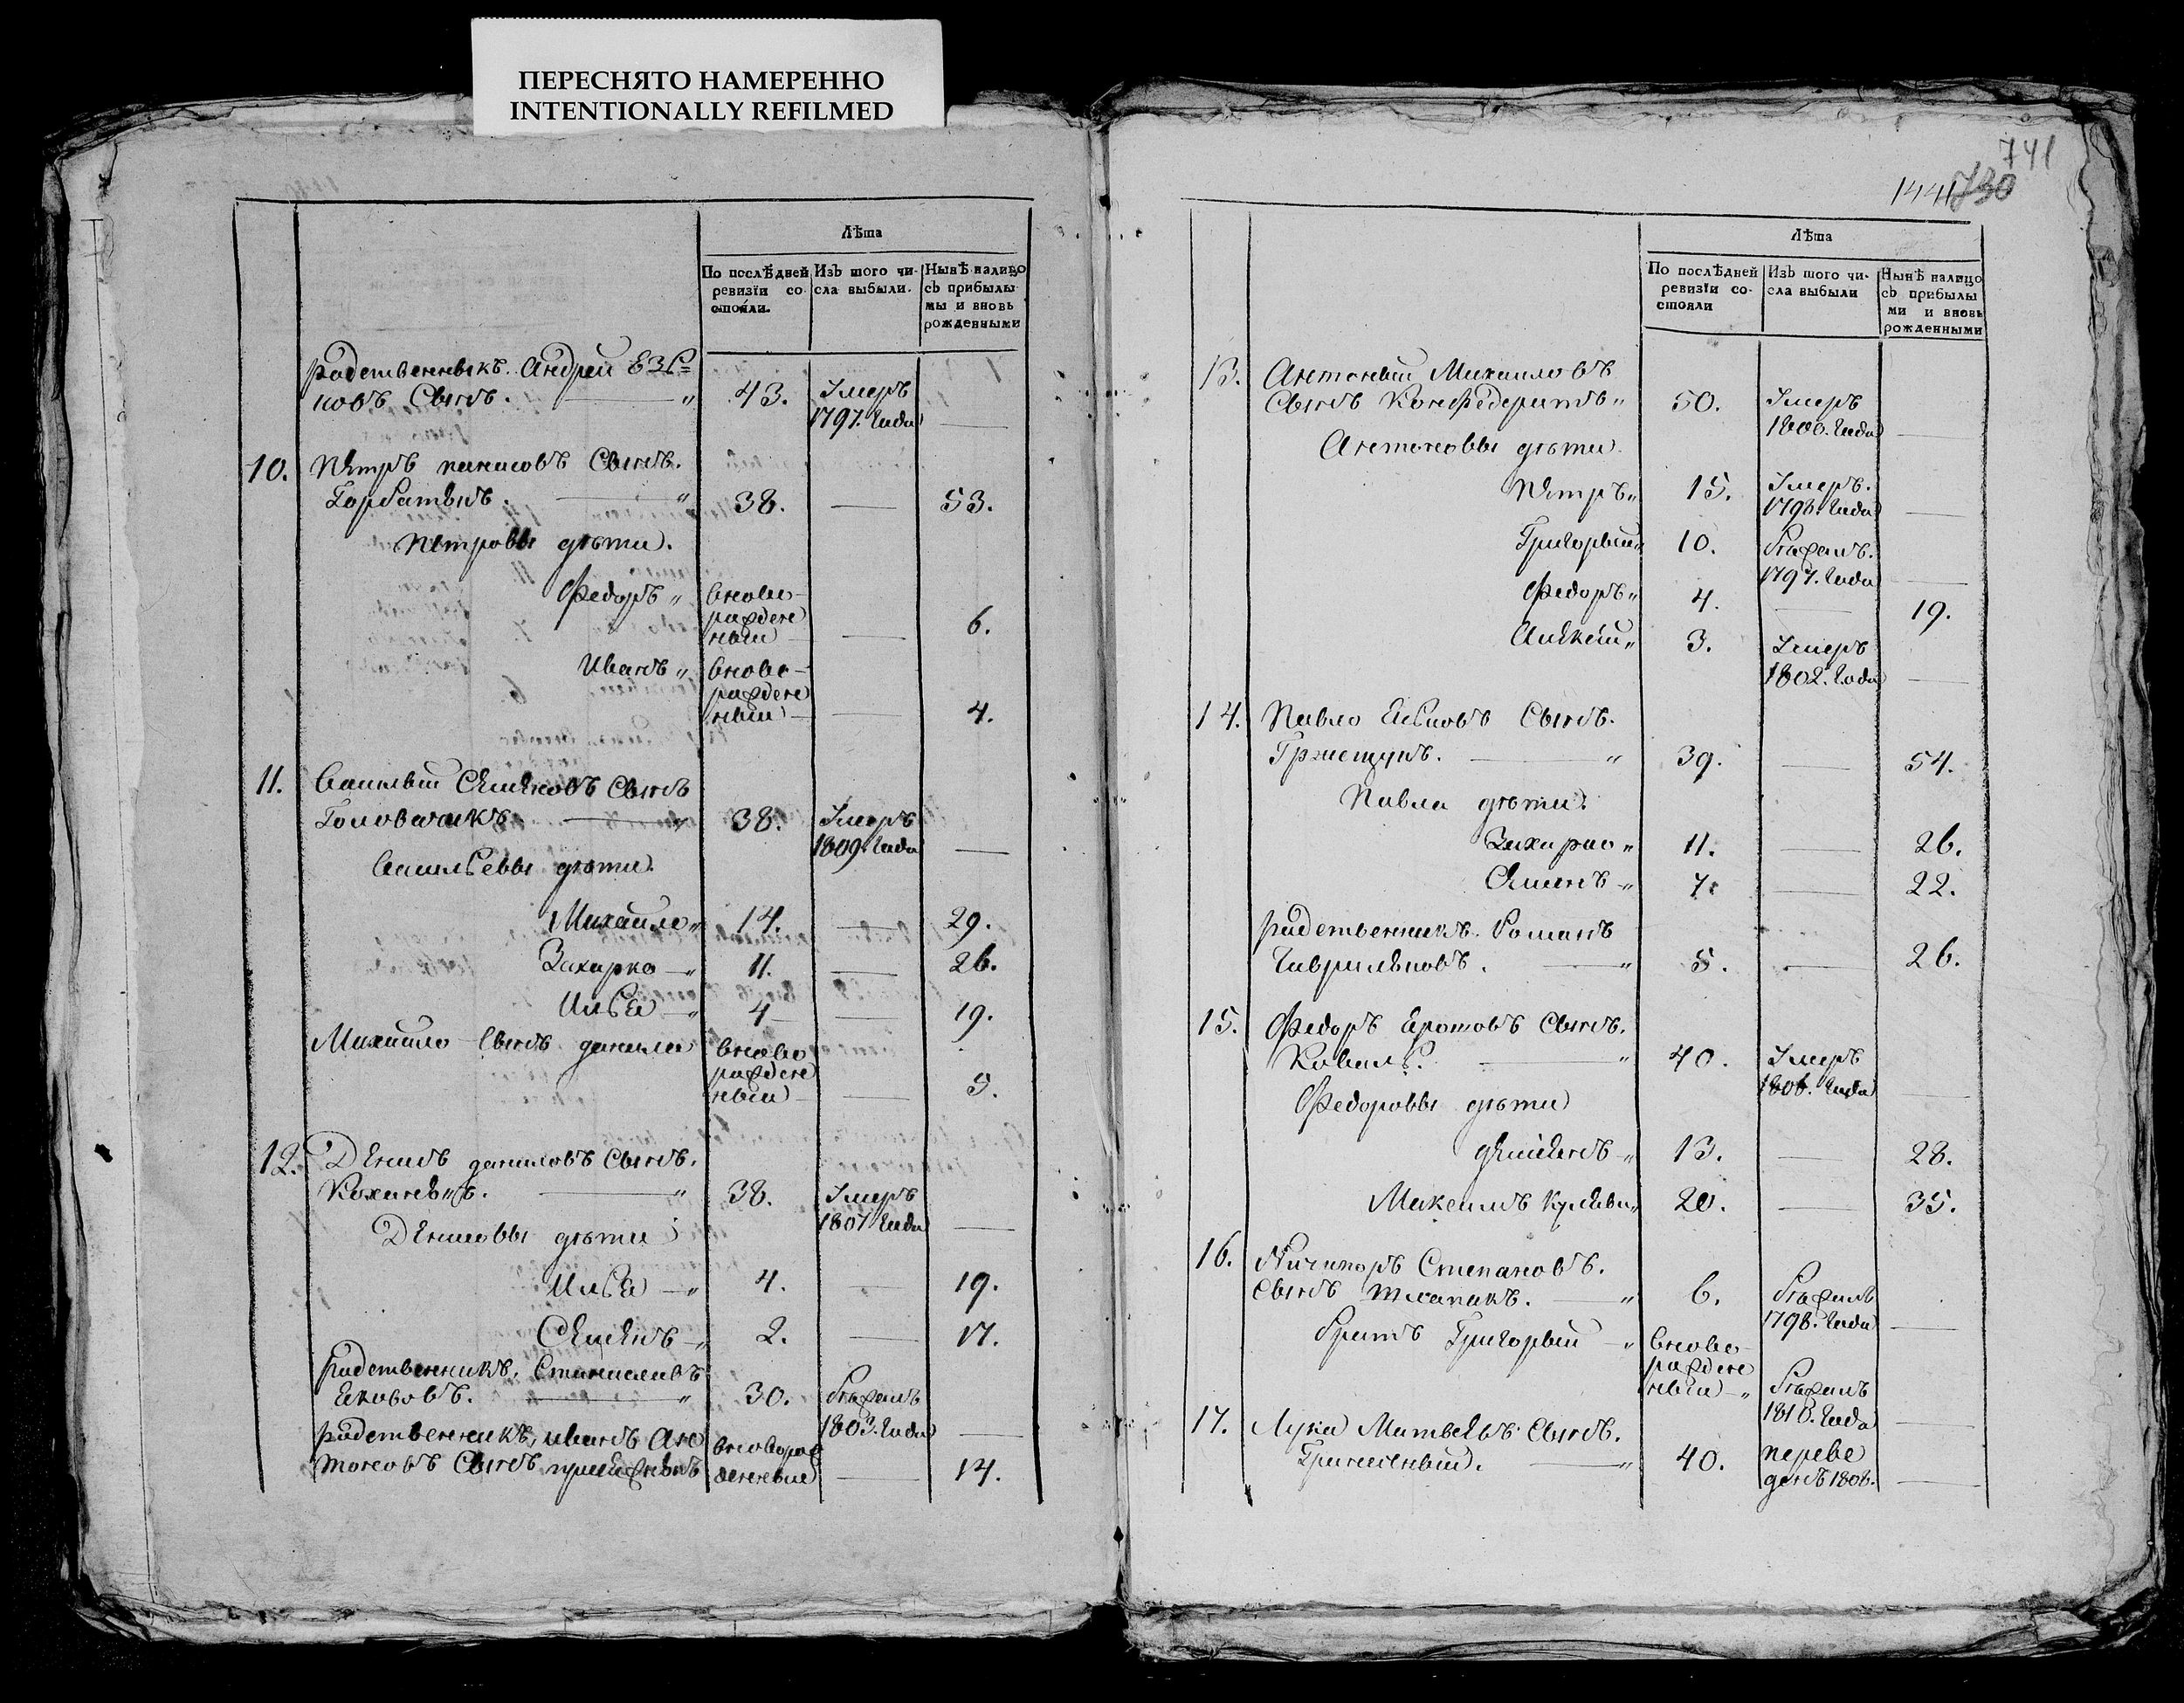 ПЕРЕСНЯТО НАМЕРЕННО
INTENTIONALLY REFILMED
Лѣта
По послѣдней ревизіи состояли.
Изъ того числа выбыли.
Нынѣ налицо съ прибылыми и вновь рожденными
родственникъ Андрей
новъ Сынъ. — „ 43. Умеръ 1797. года —
10. Петръ Сынъ.
Горбатъ — „ 38. — 53.
Петровы дѣти.
Федоръ „ вново-рожденный — 6.
Иванъ „ вново-рожденный — 4.
11. Василій Семеновъ Сынъ
— „ 38. Умеръ 1809. года —
Васильевы дѣти.
Михайло „ 14. — 29.
Захарко — „ 11. — 26.
Илья — „ 4 — 19.
Михайло Сынъ данила вново рожденный — 5.
12. Денисъ даниловъ Сынъ.
— „ 38. Умеръ 1807 года —
Денисовы дѣти
Илья — „ 4. — 19.
Семенъ — „ 2. — 17.
родственникъ, Станиславъ
Якововъ. — „ 30. бѣжалъ 1803. года —
родственникъ, иванъ Ан
тоновъ Сынъ вноворожденный — 14.
741
1441 730
Лѣта
По послѣдней ревизіи состояли
Изъ того числа выбыли
Нынѣ налицо съ прибылыми и вновь рожденными
13. Антоній Михайловъ
Сынъ Конфедератъ „ 50. Умеръ 1800. года —
Антоновы дѣти.
Петръ „ 15. Умеръ. 1798. года —
Григорій „ 10. бѣжалъ. 1797. года —
Федоръ „ 4. — 19.
Алексѣй „ 3. Умеръ 1802. года —
14. Павло Сынъ.
— „ 39. — 54.
Павла дѣти.
Захарко „ 11. — 26.
Семенъ „ 7. — 22.
родственникъ. Романъ
Гавриленовъ. — „ 5. — 26.
15. Федоръ Сынъ.
Коваль. — „ 40. Умеръ 1806. года —
Федоровы дѣти
демьянъ — „ 13. — 28.
Максимъ „ 20. — 35.
16. Ничипоръ Степановъ.
Сынъ — „ 6. бѣжалъ 1798. года —
братъ Григорій — „ вново-рожденный — „ бѣжалъ 1810. года —
17. Лука Матвѣевъ Сынъ.
— „ 40. переведенъ 1808. —